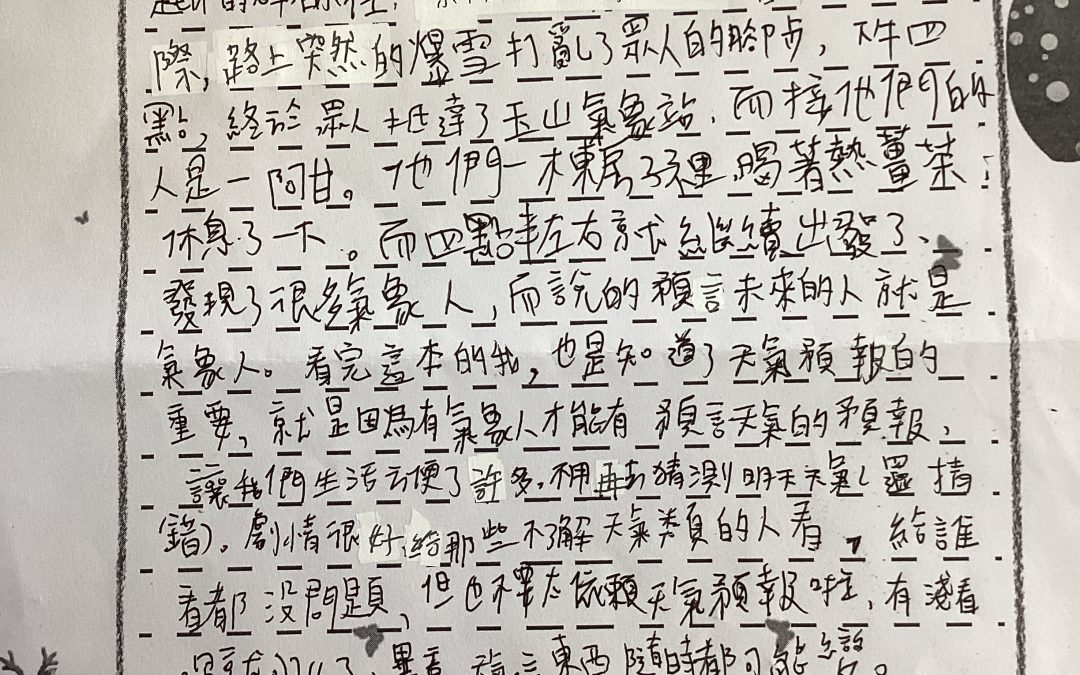 際，路上突然的爆雪打亂了眾人的腳步，下午四
點，終於眾人抵達了玉山氣象站，而接他們的
人是一阿甘。他們一棟房子裡，喝著熱薑茶，
休息了一下。而四點半左右就繼續出發了、
發現了很多氣象人，而說的預言未來的人就是
氣象人。看完這本的我，也是知道了天氣預報的
重要，就是因為有氣象人才能有預言天氣的預報，
讓我們生活方便了許多，不用再去猜測明天天氣(還猜
錯)。劇情很好，給那些不了解天氣類的人看，給誰
看都沒問題，但也不要太依賴天氣預報啦，有淺看
東西隨時都可能